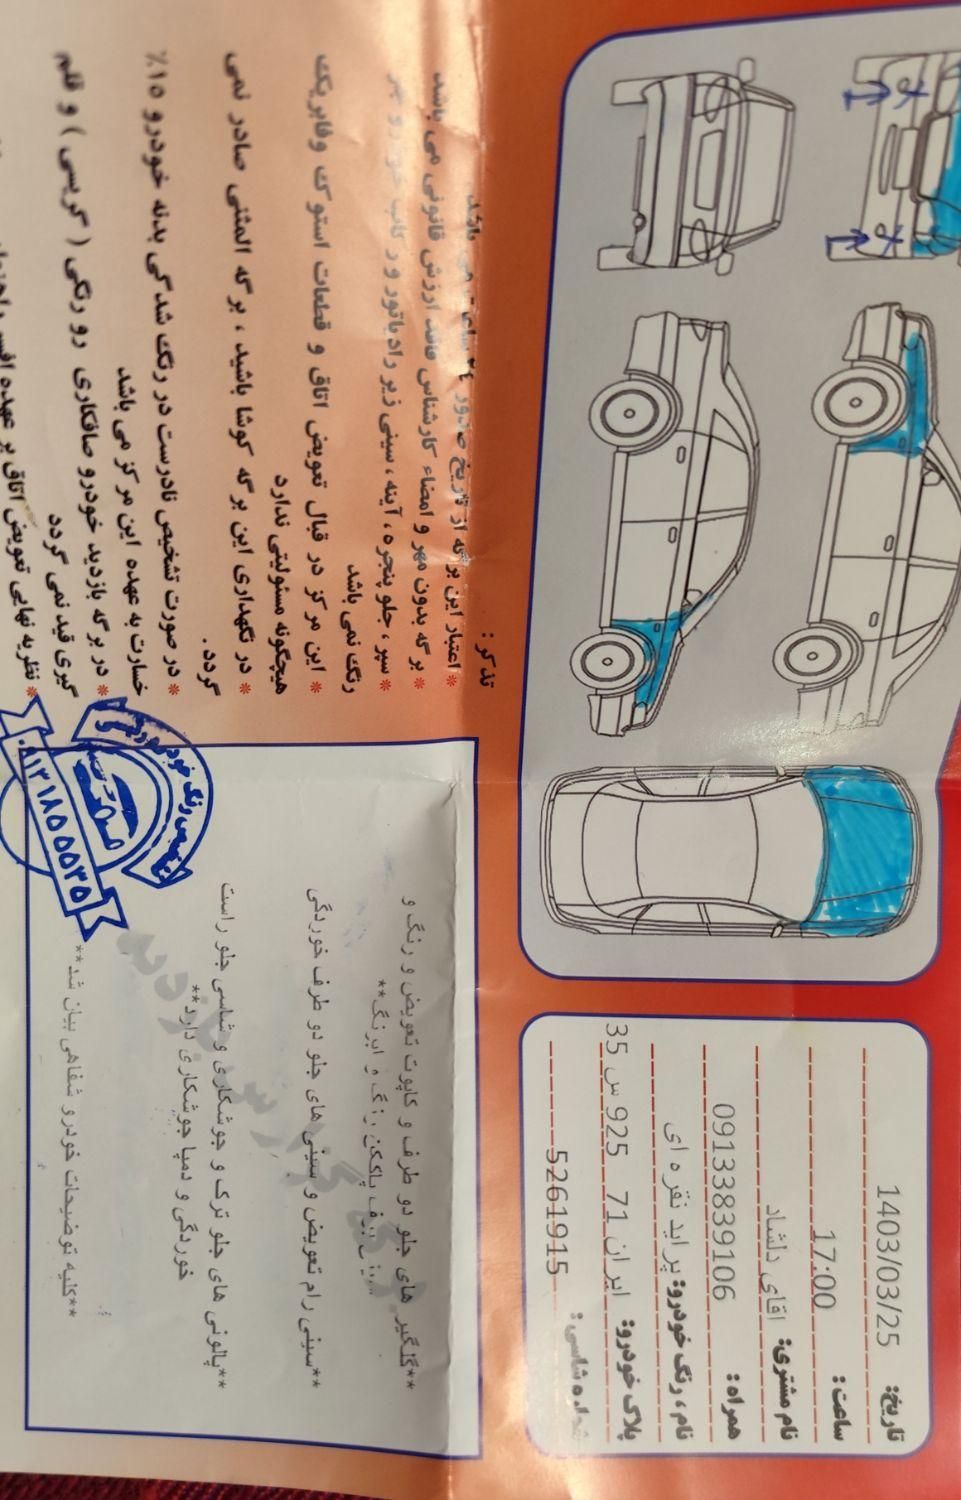 تاریخ: 1403/03/25
ساعت: 17:00
نام مشتری: اقای دلشاد
همراه: 09133839106
نام، رنگ خودرو: پراید نقره ای
پلاک خودرو: ایران 71 925 س 35
شماره شاسی: 5261915
**گلگیر های جلو دو طرف و کاپوت تعویض و رنگ و
برف پاککن رنگ و ابرنگ**
**سینی رام تعویض و سینی های جلو دو طرف خوردگی
**پالونی های جلو ترک و جوشکاری و شاسی جلو راست
خوردگی و دمپا جوشکاری دارد**
**کلیه توضیحات خودرو شفاهی بیان شد**
تشخیص رنگ خودرو
۰۹۱۳۱۸۵۵۵۳۵
تذکر:
* اعتبار این برگه از تاریخ صدور ۲۴ ساعت می باشد
* برگه بدون مهر و امضاء کارشناس فاقد ارزش قانونی می باشد
* سپر، جلو پنجره، آینه، سینی زیر رادیاتور و رکاب خودرو جزء
رنگ نمی باشد
* این مرکز در قبال تعویض اتاق و قطعات استوک وفابریک
هیچگونه مسئولیتی ندارد
* در نگهداری این برگه کوشا باشید، برگه المثنی صادر نمی
گردد.
* در صورت تشخیص نادرست در رنگ شدگی بدنه خودرو ۱۵٪
خسارت به عهده این مرکز می باشد
* در برگه بازدید خودرو صافکاری رو رنگی (گریسی) و قلم
گیری قید نمی گردد
* نظریه نهایی تعویض اتاق بر عهده افسر